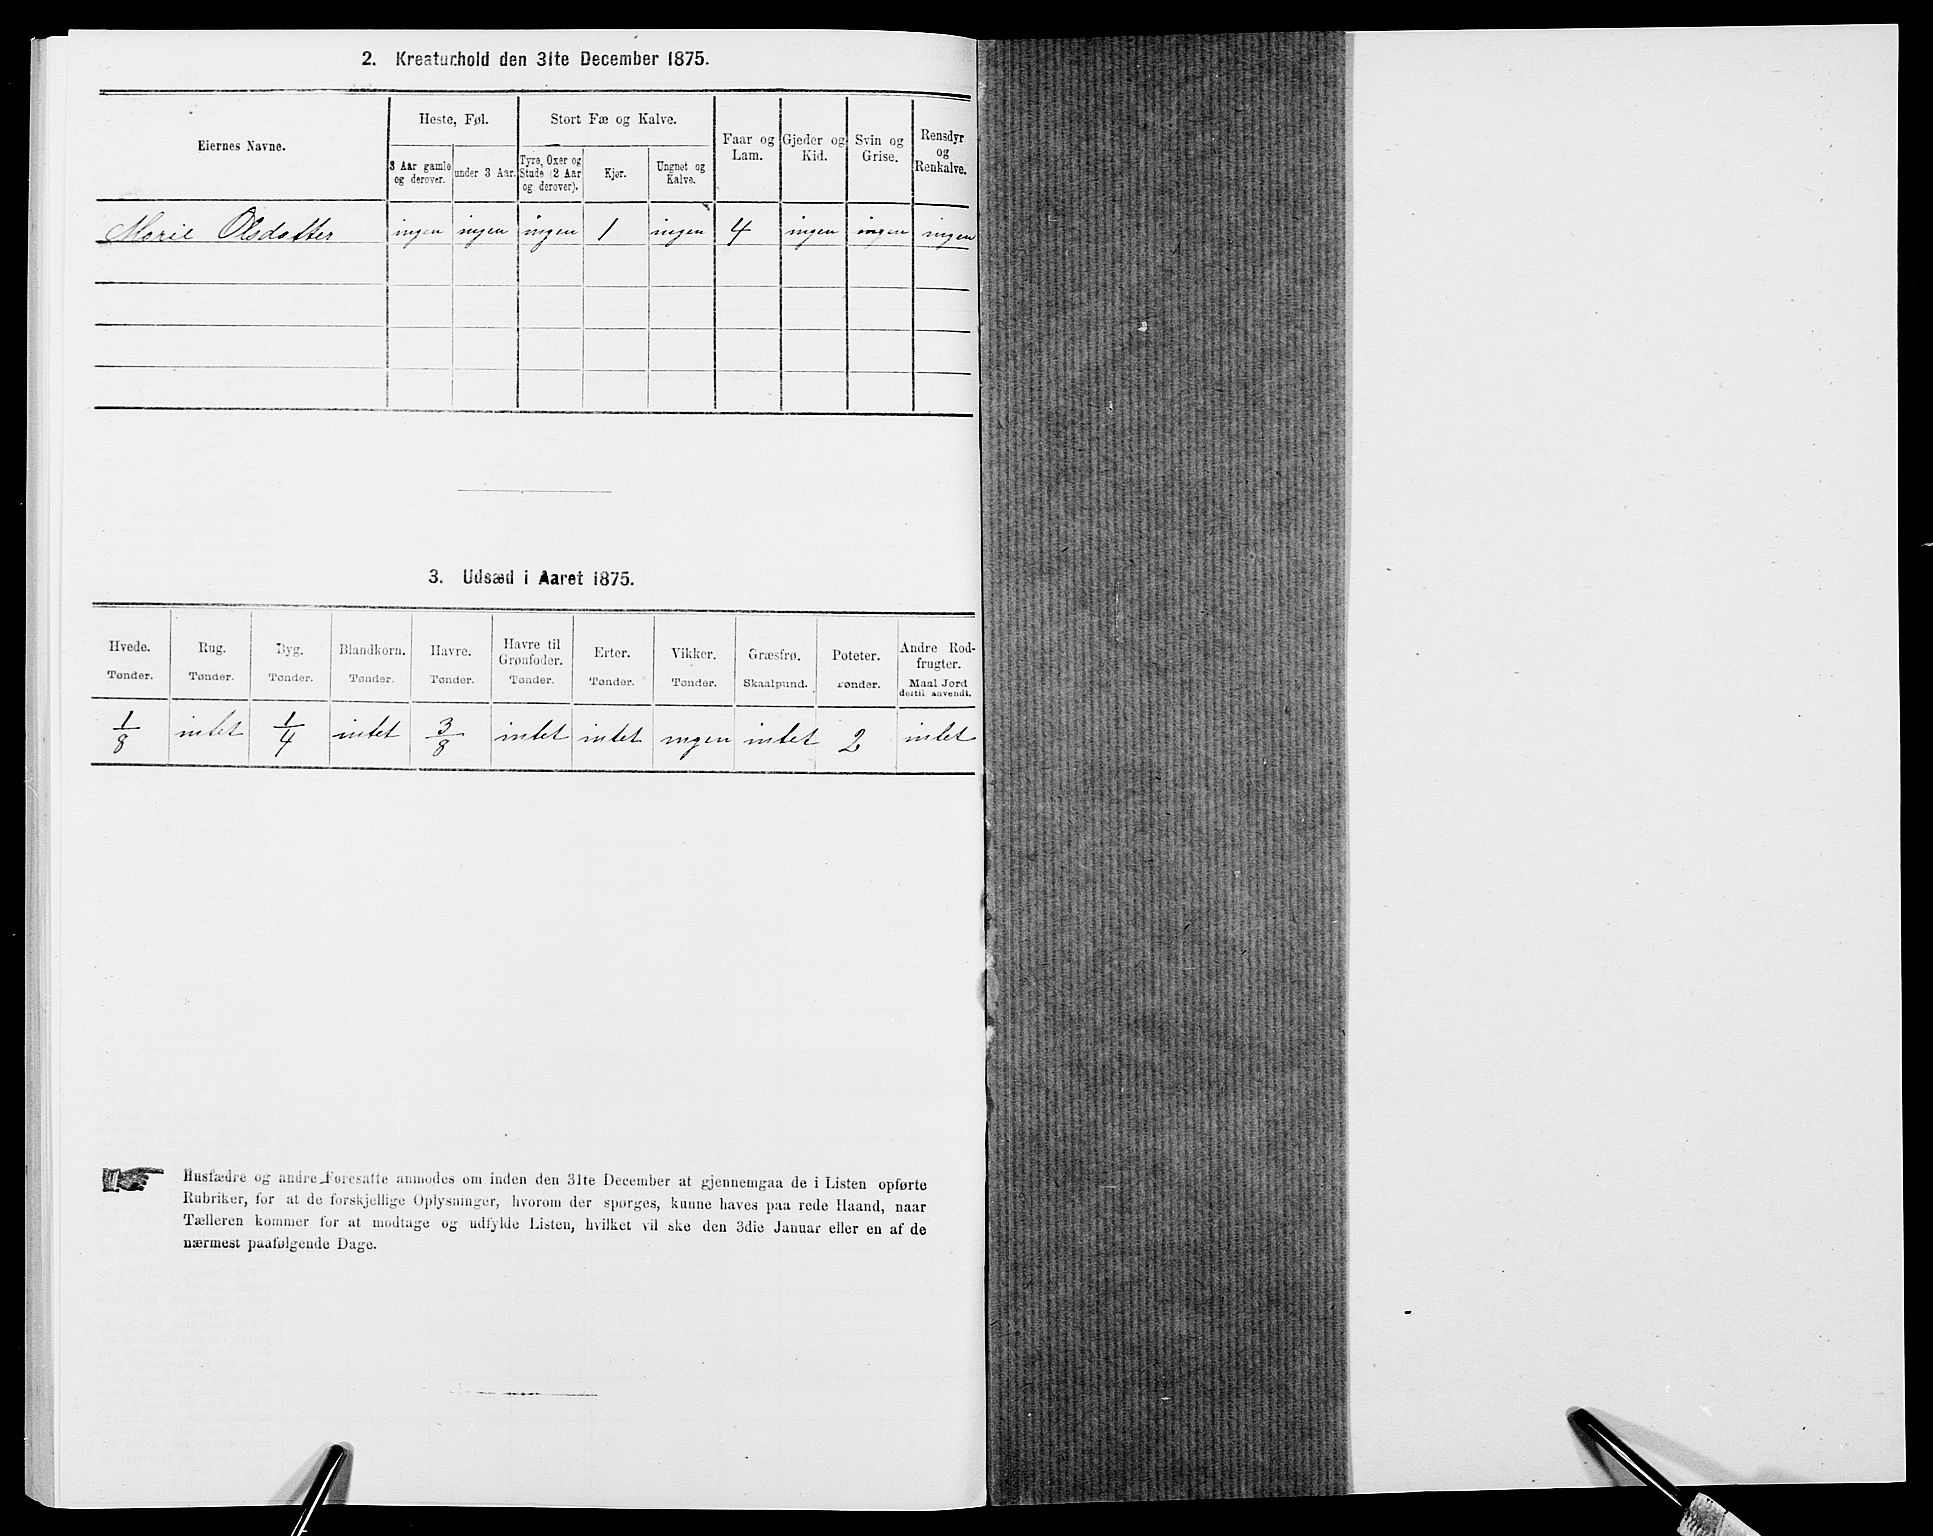 2. Kreaturhold den 31te December 1875.
Eiernes Navne. Heste, Føl. Stort Fæ og Kalve. Faar og Lam. Gjeder og Kid. Svin og Grise. Rensdyr og Renkalve.
3 Aar gamle og derover. under 3 Aar. Tyre, Oxer og Stude (2 Aar og derover). Kjør. Ungnet og Kalve.
Marie Olsdatter ingen ingen ingen 1 ingen 4 ingen ingen ingen
3. Udsæd i Aaret 1875.
Hvede. Rug. Byg. Blandkorn. Havre. Havre til Grønfoder. Erter. Vikker. Græsfrø. Poteter. Andre Rodfrugter.
Tønder. Tønder. Tønder. Tønder. Tønder. Tønder. Tønder. Tønder. Skaalpund. Tønder. Maal Jord dertil anvendt.
1/8 intet 1/4 intet 3/8 intet intet ingen intet 2 intet
Husfædre og andre Foresatte anmodes om inden den 31te December at gjennemgaa de i Listen opførte
Rubriker, for at de forskjellige Oplysninger, hvorom der spørges, kunne haves paa rede Haand, naar
Tælleren kommer for at modtage og udfylde Listen, hvilket vil ske den 3die Januar eller en af de
nærmest paafølgende Dage.